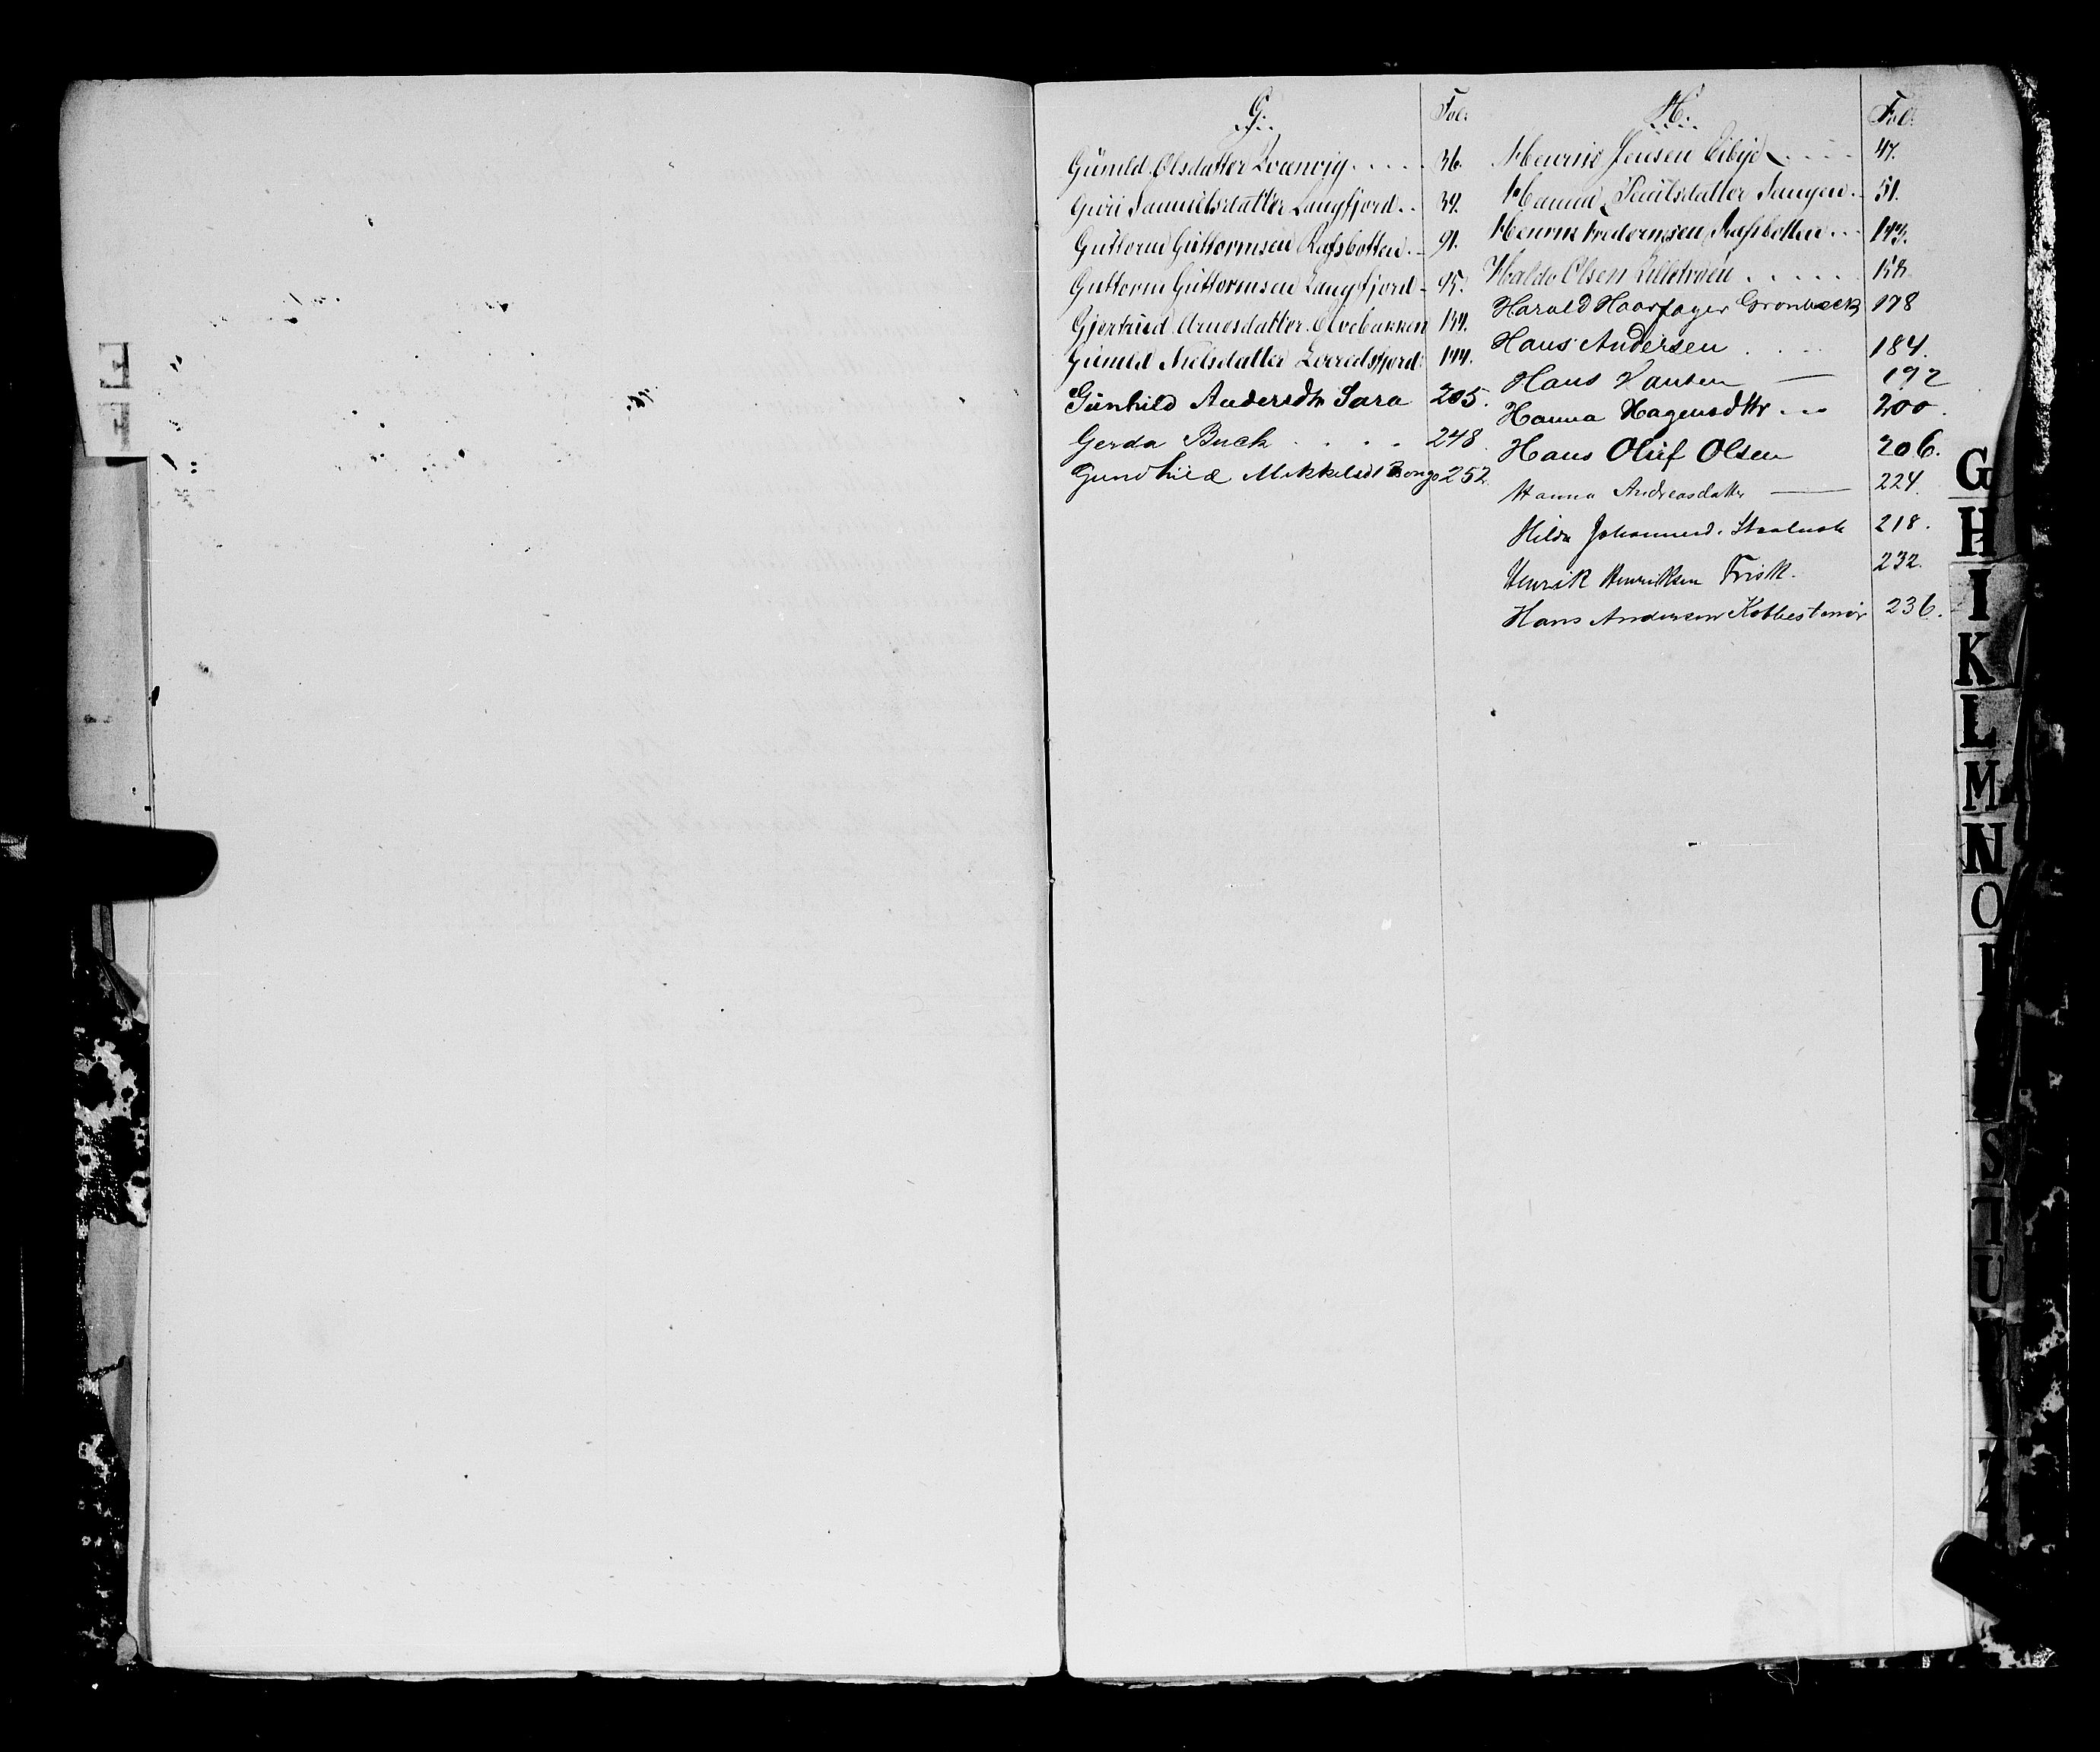 G.
Fol:
Gunild Olsdatter Kvænvig 36.
Guri Samuelsdatter Langfjord 39.
Guttorm Guttormsen Rafsbotten 91.
Guttorm Guttormsen Langfjord 95.
Gjertrud Arnesdatter Elvebakken 134.
Gunild Nielsdatter Leerredsfjord 144.
Gunhild Andersdtr Sara 205.
Gerda Buck 248
Gundhild Mikkelsdt Bongo 252
H.
Fol:
Henrik Jensen Eibyd 47.
Hanna Poulsdatter Tangen 51.
Henrik Fredriksen Rafsbotten 143.
Haldo Olsen Lillstrøen 158
Harald Haarfager Grønbeck 178
Hans Andersen 184.
Hans Hansen 192
Hanna Hagensdttr 200.
Hans Oluf Olsen 206.
Hanna Andreasdatter 224.
Hilda Johannesd. 218.
Henrik Henriksen Frisk. 232.
Hans Andersen 236.
E
F
G
H
I
K
L
M
N
O
S
T
U